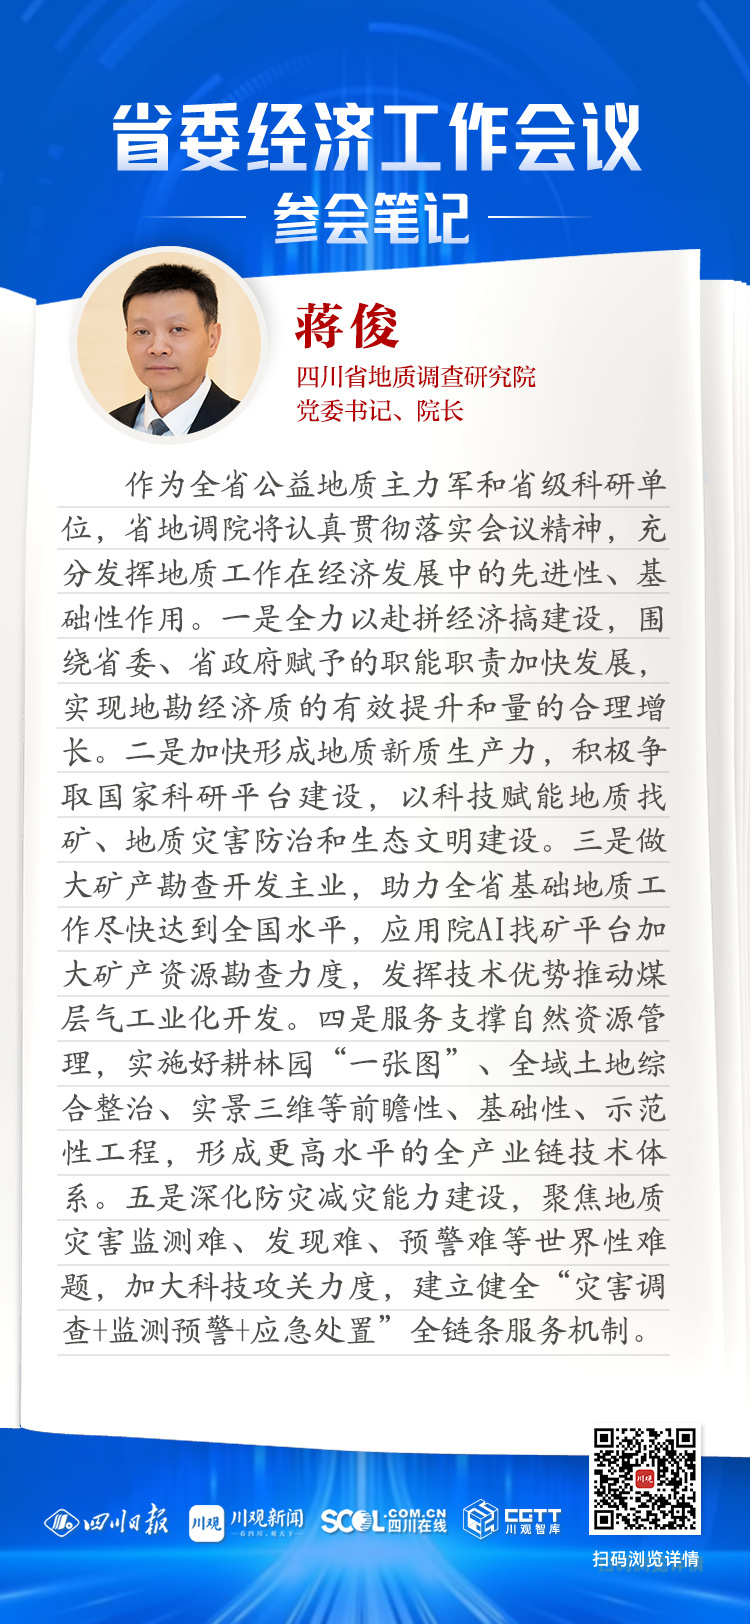 省委经济工作会议
参会笔记
蒋俊
四川省地质调查研究院
党委书记、院长
作为全省公益地质主力军和省级科研单
位，省地调院将认真贯彻落实会议精神，充
分发挥地质工作在经济发展中的先进性、基
础性作用。一是全力以赴拼经济搞建设，围
绕省委、省政府赋予的职能职责加快发展，
实现地勘经济质的有效提升和量的合理增
长。二是加快形成地质新质生产力，积极争
取国家科研平台建设，以科技赋能地质找
矿、地质灾害防治和生态文明建设。三是做
大矿产勘查开发主业，助力全省基础地质工
作尽快达到全国水平，应用院AI找矿平台加
大矿产资源勘查力度，发挥技术优势推动煤
层气工业化开发。四是服务支撑自然资源管
理，实施好耕林园“一张图”、全域土地综
合整治、实景三维等前瞻性、基础性、示范
性工程，形成更高水平的全产业链技术体
系。五是深化防灾减灾能力建设，聚焦地质
灾害监测难、发现难、预警难等世界性难
题，加大科技攻关力度，建立健全“灾害调
查+监测预警+应急处置”全链条服务机制。
川观
四川日报
川观
川观新闻
SCOL.COM.CN
四川在线
CGTT
川观智库
扫码浏览详情